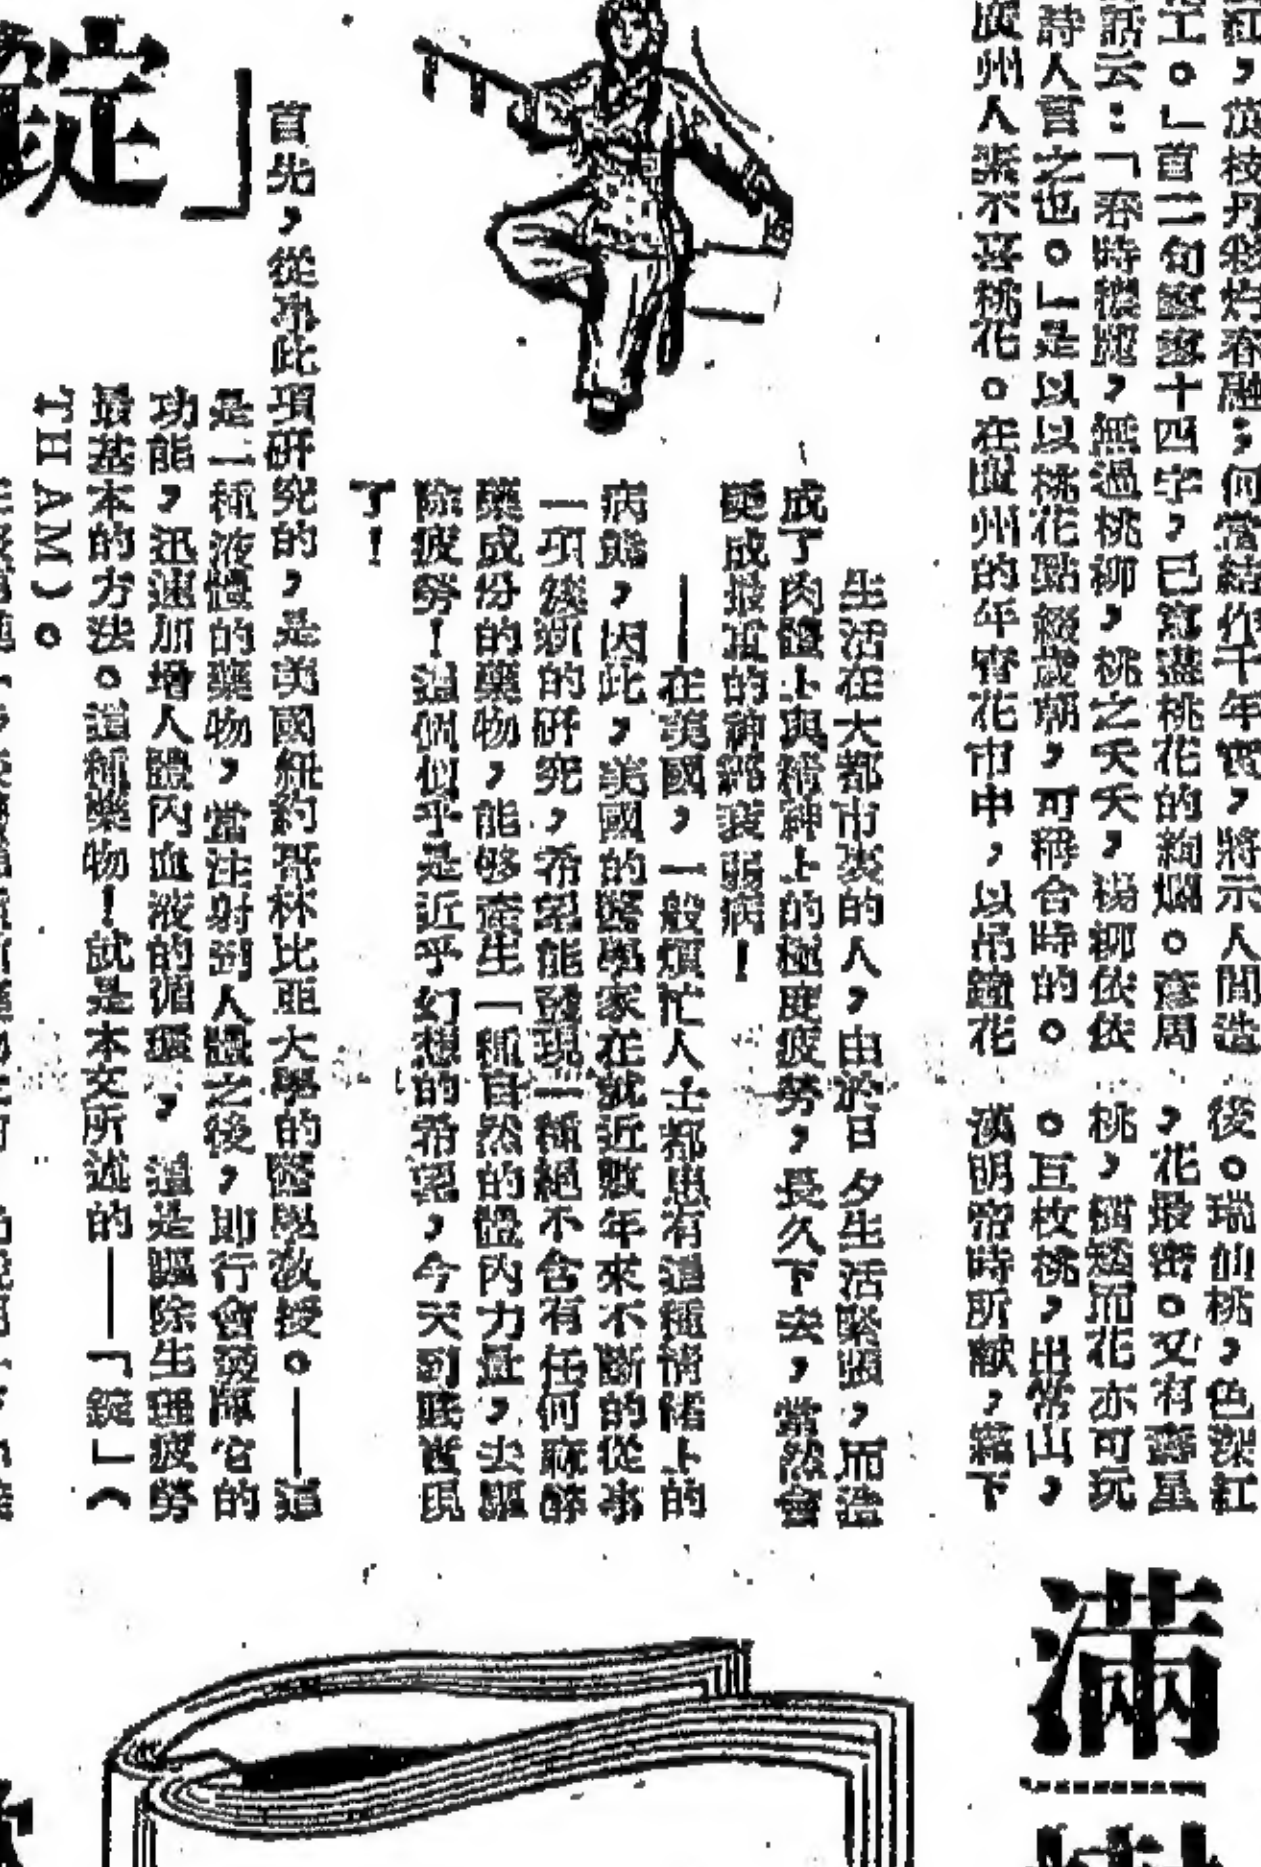 紅，茂枝丹彩灼春融；何當結作千年實，將示人間造
工。」首二句寥寥十四字，已寫盡桃花的絢爛。彥周
話云：「春時穠麗，無過桃柳，桃之夭夭，楊柳依依
詩人言之也。」是以以桃花點綴歲朝，可稱合時的。
廣州人素不喜桃花。在廣州的年宵花市中，以吊鐘花
後。瑞仙桃，色深紅
，花最密。又有壽星
桃，樹矮而花亦可玩
。巨枚桃，出常山，
漢明帝時所獻，霜下
滿
生活在大都市裏的人，由於日夕生活緊張，而造
成了肉體上與精神上的極度疲勞，長久下去，當然會
變成最重的神經衰弱病！
——在美國，一般煩忙人士都患有這種情緒上的
病態，因此，美國的醫學家在就近數年來不斷的從事
一項幾新的研究，希望能發現一種絕不含有任何麻醉
藥成份的藥物，能够產生一種自然的體內力量，去驅
除疲勞！這個似乎是近乎幻想的希望，今天到底實現
了！
錠」
首先，從事此項研究的，是美國紐約哥林比亞大學的醫學教授。——這
是一種液體的藥物，當注射到人體之後，即行會發揮它的
功能，迅速加增人體內血液的循環，這是驅除生理疲勞
最基本的方法。這種藥物！就是本文所述的——「錠」（
THAM）。